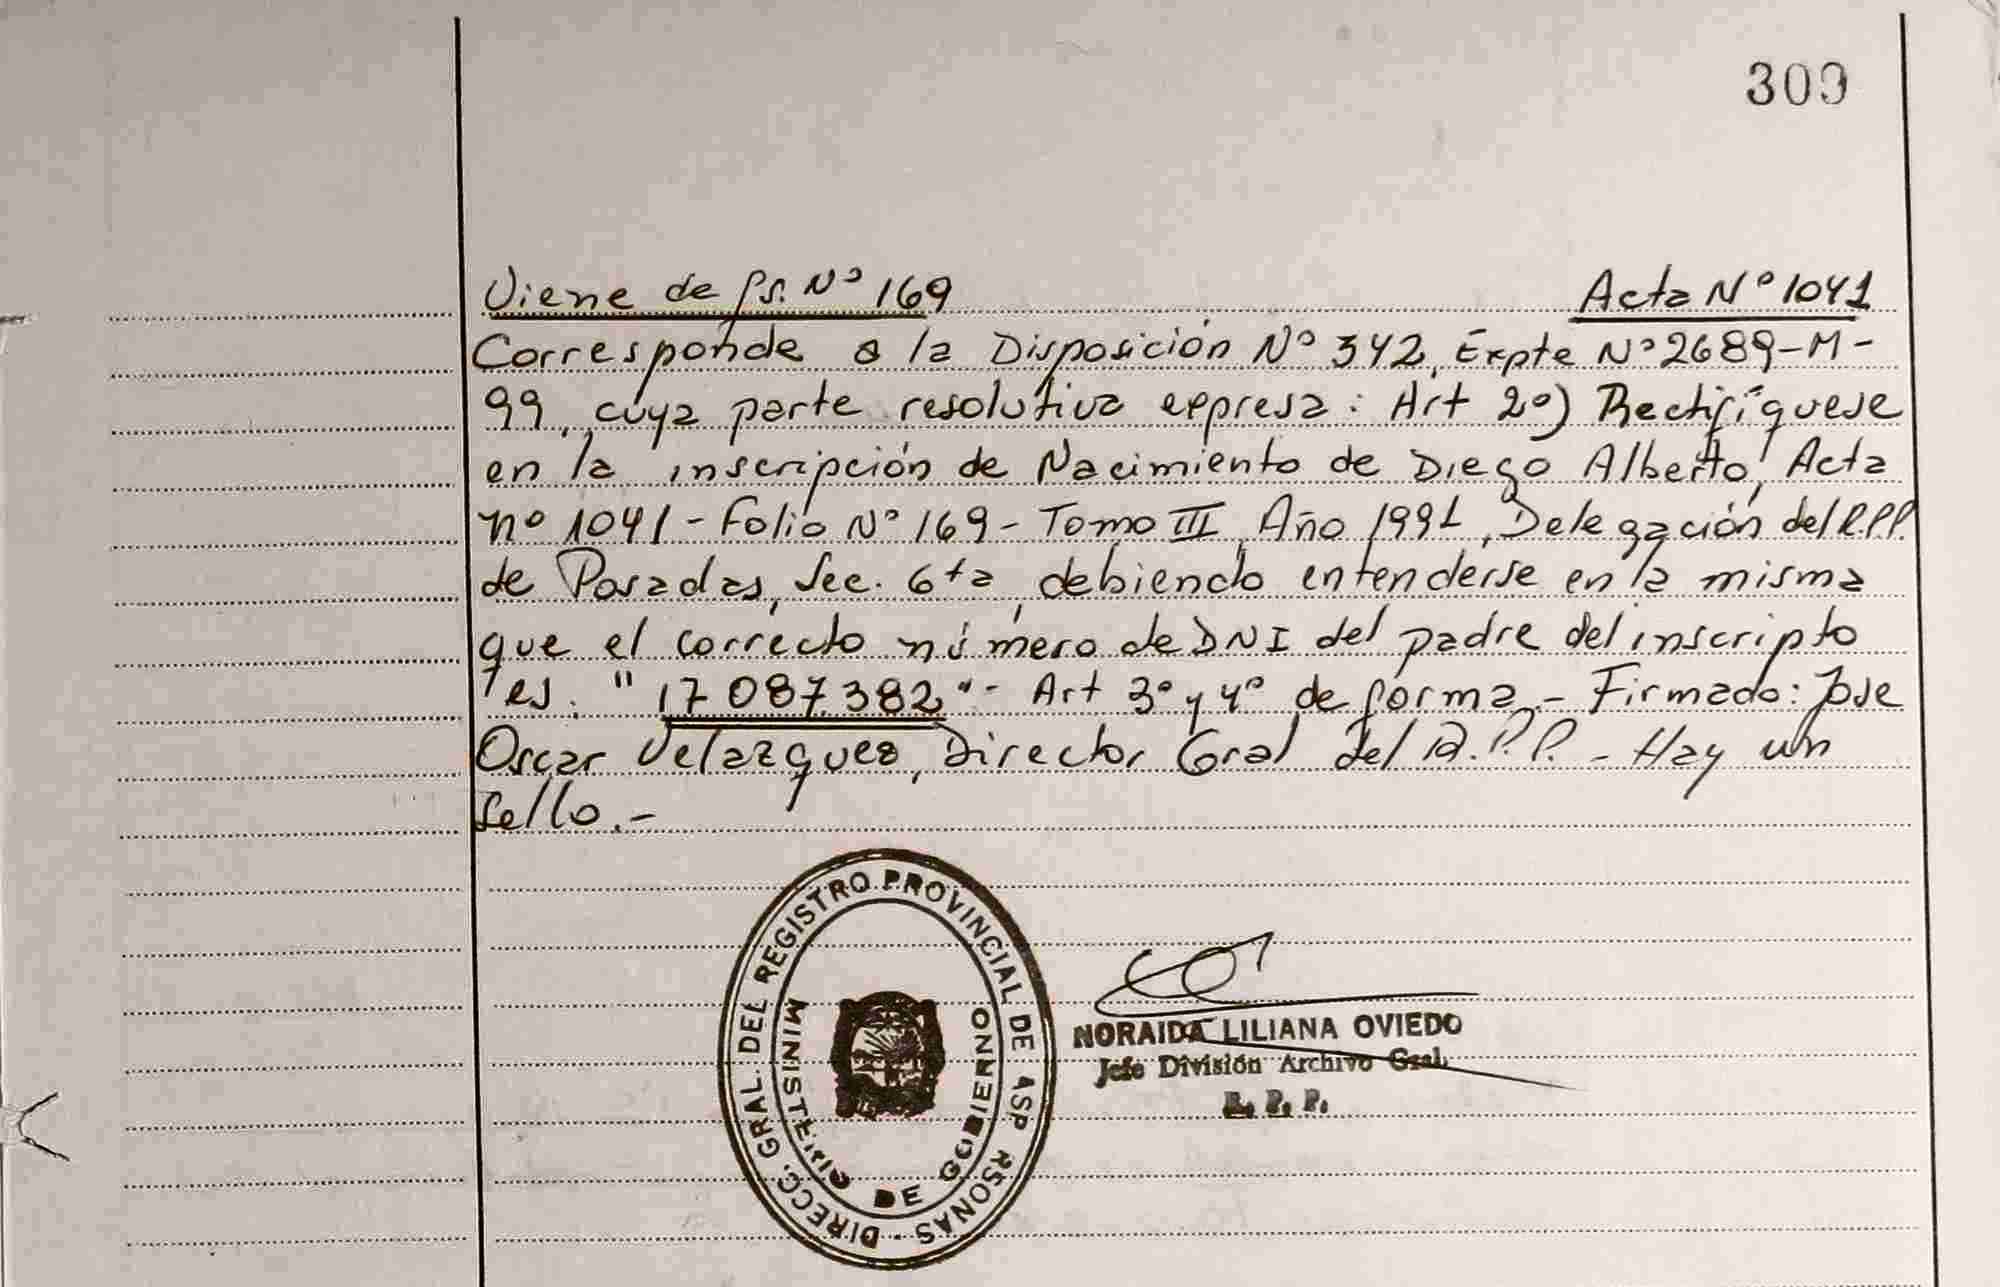 309
Viene de fs. Nº 169 Acta Nº 1041
Corresponde a la Disposición Nº 342, Expte Nº 2689-M-
99, cuya parte resolutiva expresa: Art 2º) Rectifíquese
en la inscripción de Nacimiento de Diego Alberto, Acta
nº 1041 - Folio Nº 169 - Tomo III, Año 1991, Delegación del R.P.P.
de Posadas, Sec. 6ta, debiendo entenderse en la misma
que el correcto número de DNI del padre del inscripto
es: "17.087.382" - Art 3º y 4º de forma.- Firmado: Jose
Oscar Velazquez, Director Gral del R.P.P. - Hay un
sello.-
DIRECC. GRAL. DEL REGISTRO PROVINCIAL DE ASP RSONAS -
MINISTERIO DE GOBIERNO
NORAIDA LILIANA OVIEDO
Jefe División Archivo Gral.
R. P. P.